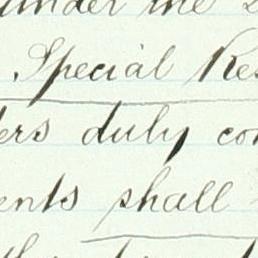 under the
Special Res
ers duly con
ents shall